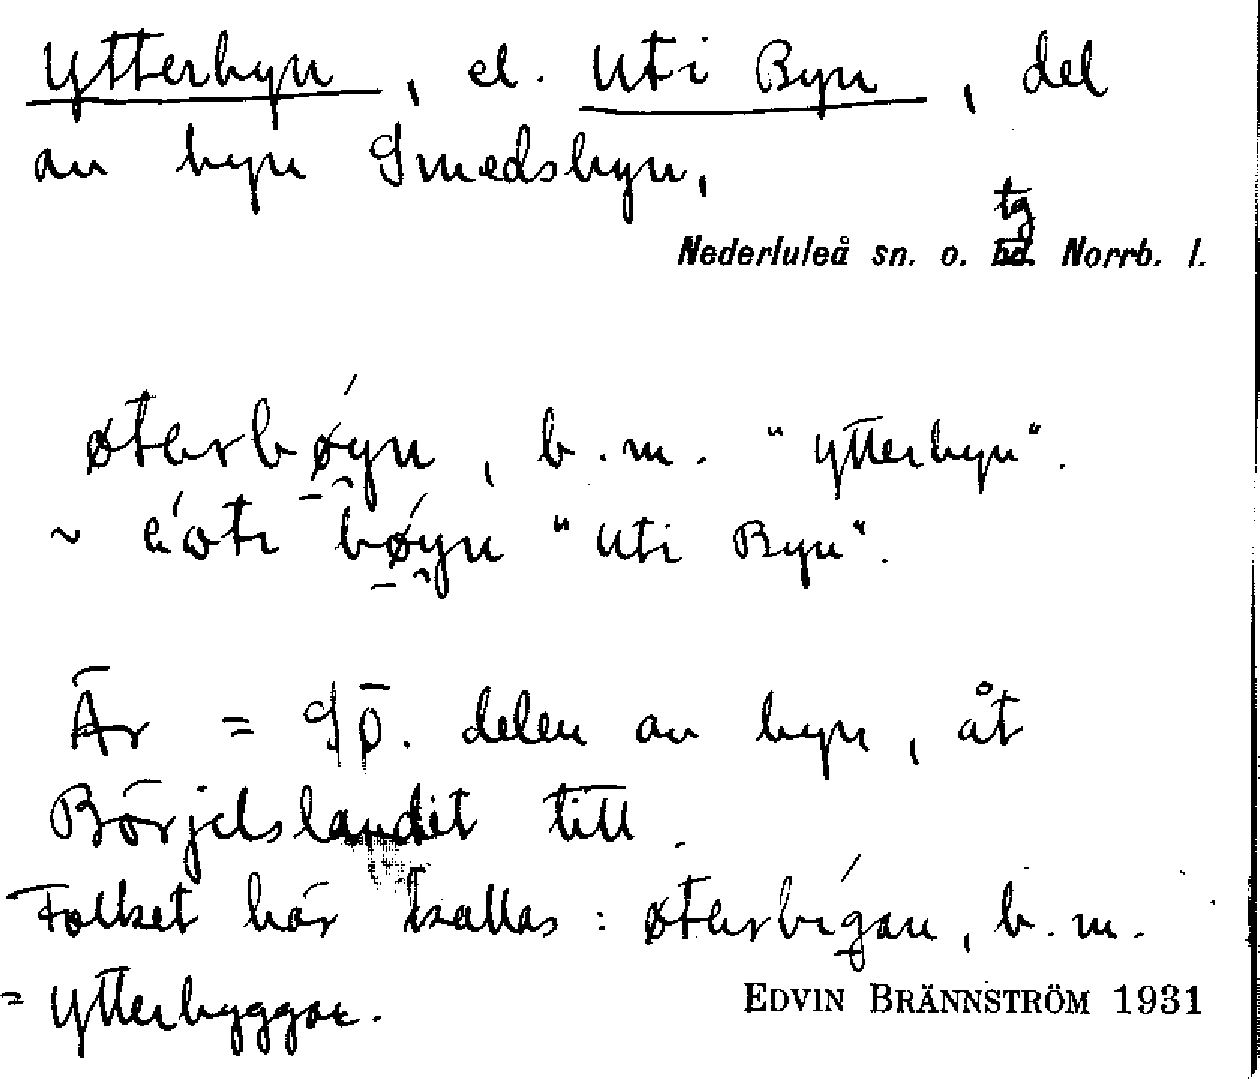 Ytterbyn, el. Uti Byn, del
av byn Smedsbyn,
tg
Nederluleå sn. o. hd. Norrb. l.
øterbøyn, b.m. "Ytterbyn".
~ øyn "Uti Byn".
Är = delen av byn, åt
Börjelslandet till.
Folket här kallas: øterbigan, b.m.
= Ytterbyggar.
EDVIN BRÄNNSTRÖM 1931